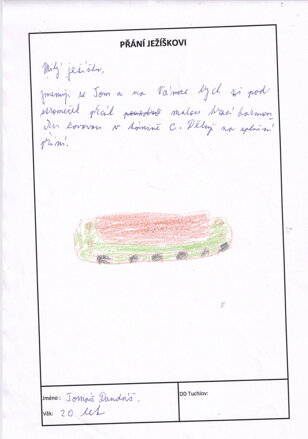 PŘÁNÍ JEŽÍŠKOVI
Milý ježíšku,
jmenuji se Tom a na Vánoce bych si pod
stromeček přál malou hrací harmon
iku kovovou v tónině C. Děkuji za splnění
přání.
Jméno: Tomáš Dandáš.
Věk: 20 let
DD Tuchlov: